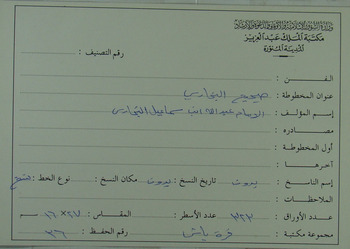 وزارة الشؤون الإسلامية والأوقاف والدعوة والإرشاد
مكتبة الملك عبد العزيز
المدينة المنورة
رقم التصنيف :
الفن :
عنوان المخطوطة : صحيح البخاري
إسم المؤلف : الإمام عبدالله اسماعيل البخاري
مصادره :
أول المخطوطة :
آخرها :
إسم الناسخ : بدون تاريخ النسخ : بدون مكان النسخ : نوع الخط : نسخ
الملاحظات :
عدد الأوراق : ٣٢٧ عدد الأسطر : المقاس : ٢٧×١٦ سم
مجموعة مكتبة : قرة باش رقم الحفظ : ٣٦